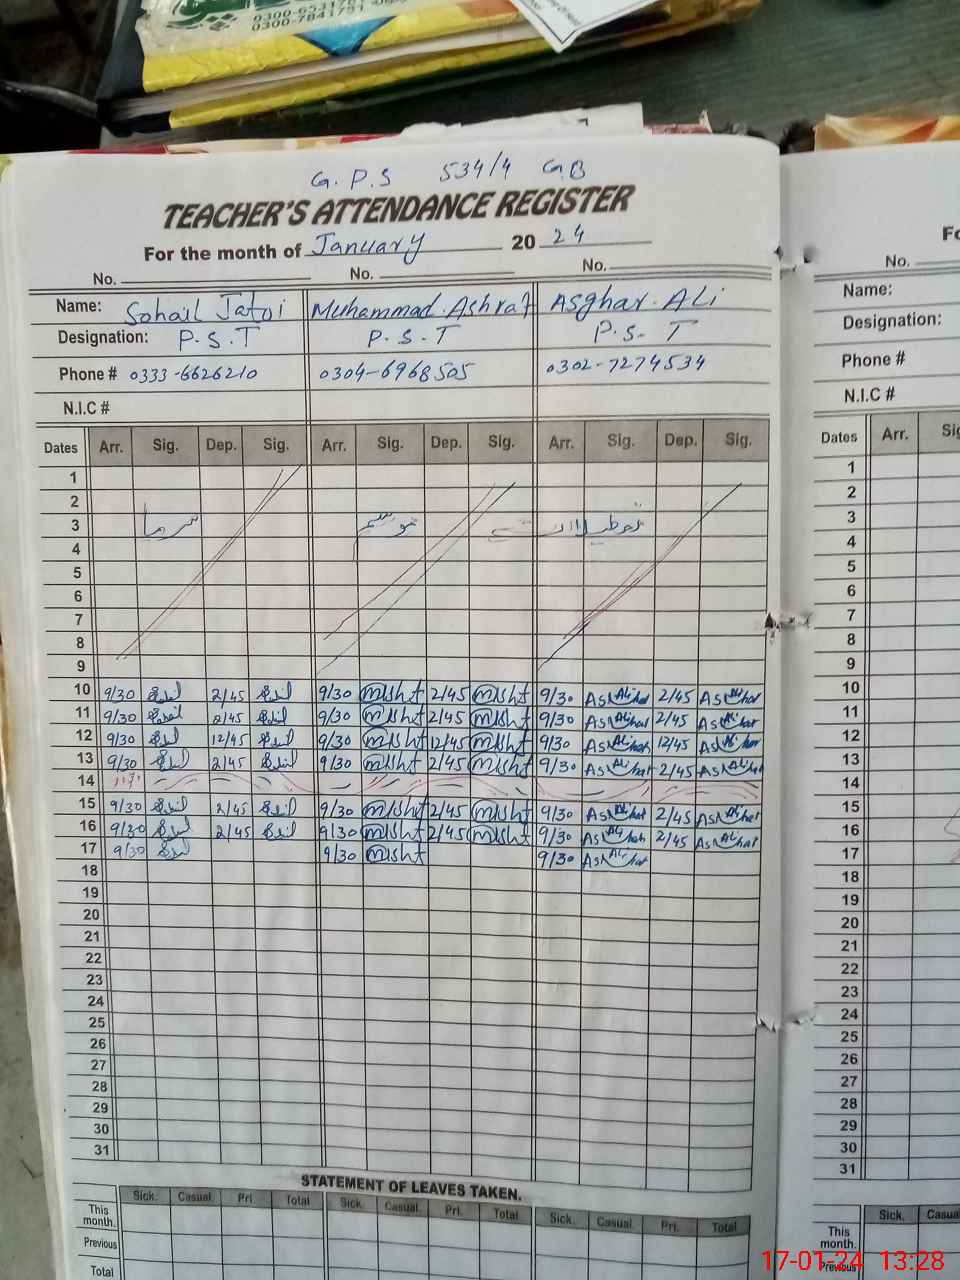 0300-7841751
G.P.S 534/4 GB
TEACHER'S ATTENDANCE REGISTER
For the month of January 2024
No. No. No. No.
Name: Sohail Jatoi Muhammad Ashraf Asghar Ali Name:
Designation: P.S.T P.S.T P.S.T Designation:
Phone # 0333-6626210 0304-6968505 0302-7274534 Phone #
N.I.C # N.I.C #
Dates Arr. Sig. Dep. Sig. Arr. Sig. Dep. Sig. Arr. Sig. Dep. Sig. Dates Arr.
1 1
2 2
3 سرما موسم تعطیلات 3
4 4
5 5
6 6
7 7
8 8
9 9
10 9/30 2/45 9/30 2/45 9/30 2/45 10
11 9/30 2/45 9/30 2/45 9/30 2/45 11
12 9/30 12/45 9/30 12/45 9/30 12/45 12
13 9/30 2/45 9/30 2/45 9/30 2/45 13
14 14
15 9/30 2/45 9/30 2/45 9/30 2/45 15
16 9/30 2/45 9/30 2/45 9/30 2/45 16
17 9/30 9/30 9/30 17
18 18
19 19
20 20
21 21
22 22
23 23
24 24
25 25
26 26
27 27
28 28
29 29
30 30
31 31
STATEMENT OF LEAVES TAKEN.
Sick. Casual. Pri. Total Sick. Casual. Pri. Total Sick. Casual. Pri. Total Sick.
This month. This month.
Previous Previous
Total
17-01-24 13:28